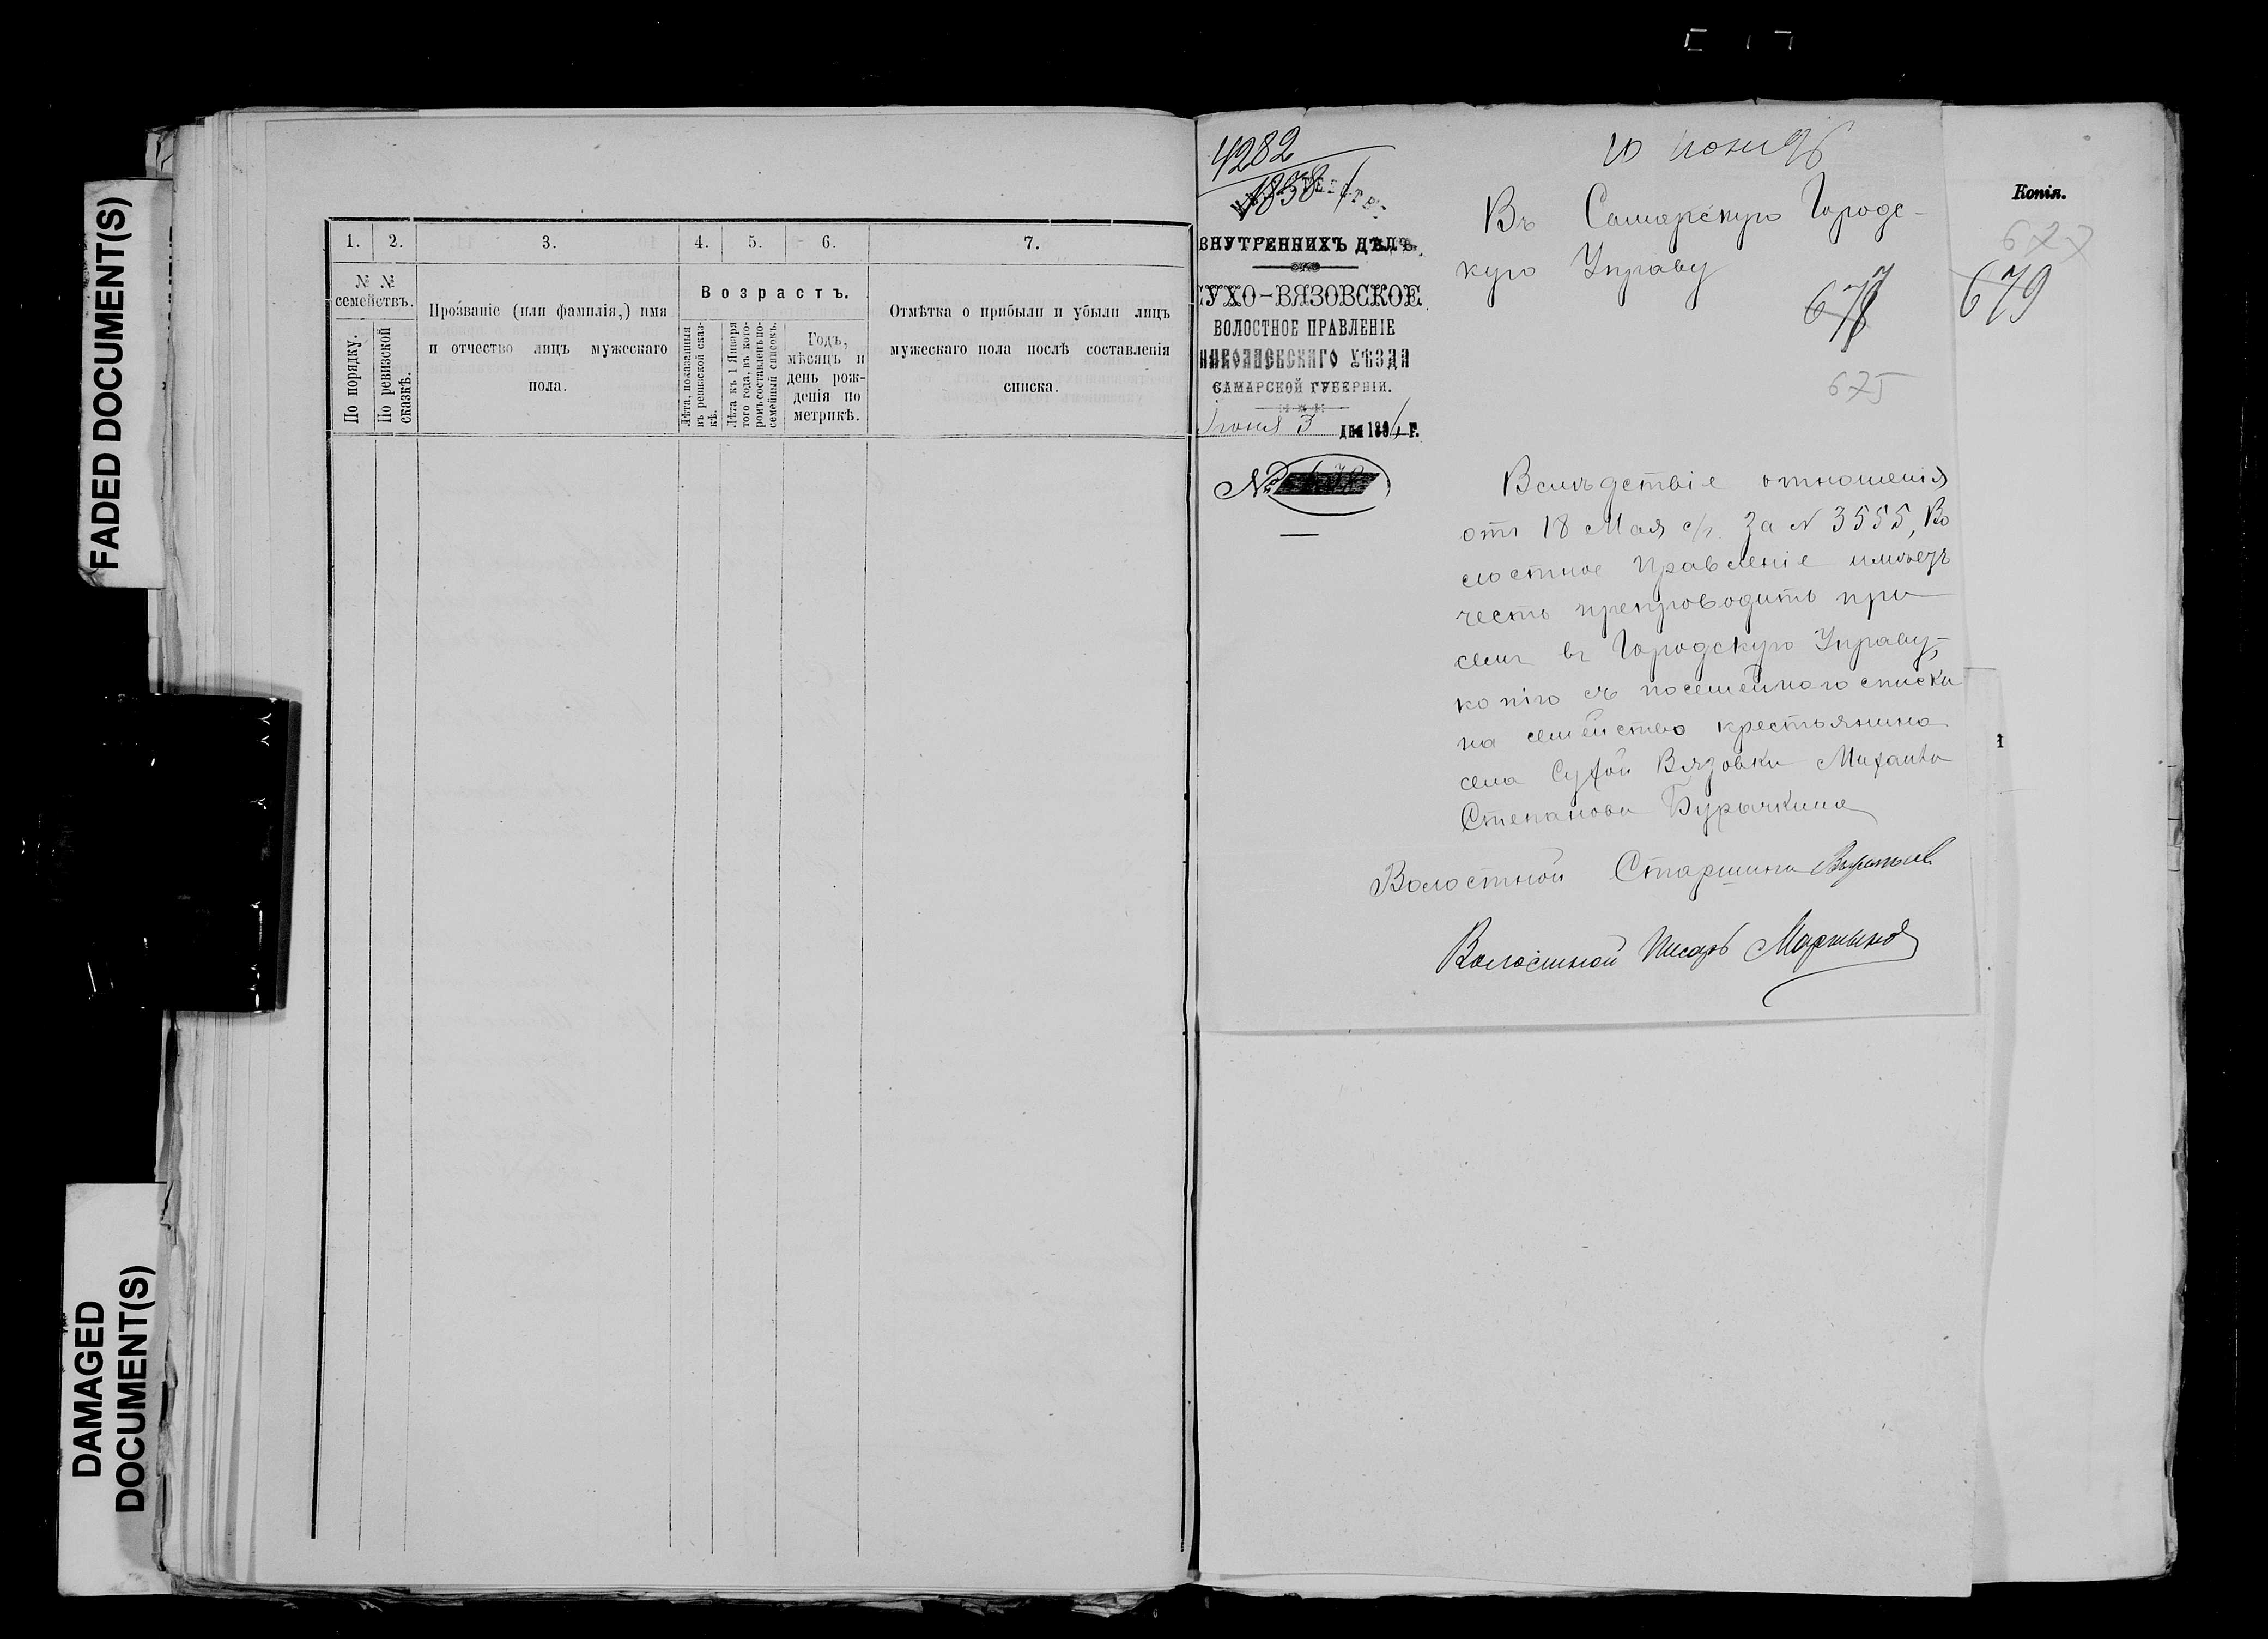 FADED DOCUMENT(S)
DAMAGED
DOCUMENT(S)
1. 2. 3. 4. 5. 6. 7.
№ №
семействъ.
По порядку.
По ревизской
сказкѣ.
Прозваніе (или фамилія,) имя
и отчество лицъ мужескаго
пола.
Возрастъ.
Лѣта, показанныя
въ ревизской сказ-
кѣ.
Лѣта къ 1 Января
того года, въ кото-
ромъ составленъ по-
семейный списокъ.
Годъ,
мѣсяцъ и
день рож-
денія по
метрикѣ.
Отмѣтка о прибыли и убыли лицъ
мужескаго пола послѣ составленія
списка.
4282
1838
ВНУТРЕННИХЪ ДѢЛЪ.
УХО-ВЯЗОВСКОЕ
ВОЛОСТНОЕ ПРАВЛЕНІЕ
НИКОЛАЕВСКАГО УѢЗДА
САМАРСКОЙ ГУБЕРНІИ.
Іюня 3 дня 1896 г.
№
10 июня 96
Въ Самарскую Городс-
кую Управу
678
675
Вслѣдствіе отношенія
отъ 18 Мая с/г. за N 3555, Во
лостное Правленіе имѣетъ
честь препроводить при
семъ въ Городскую Управу-
копію съ посемейнаго списка
на семейство крестьянина
села Сухой Вязовки Михаила
Степанова Бурачкина
Волостной Старшина
Волостной Писарь Мартынов
Копія.
677
679
1